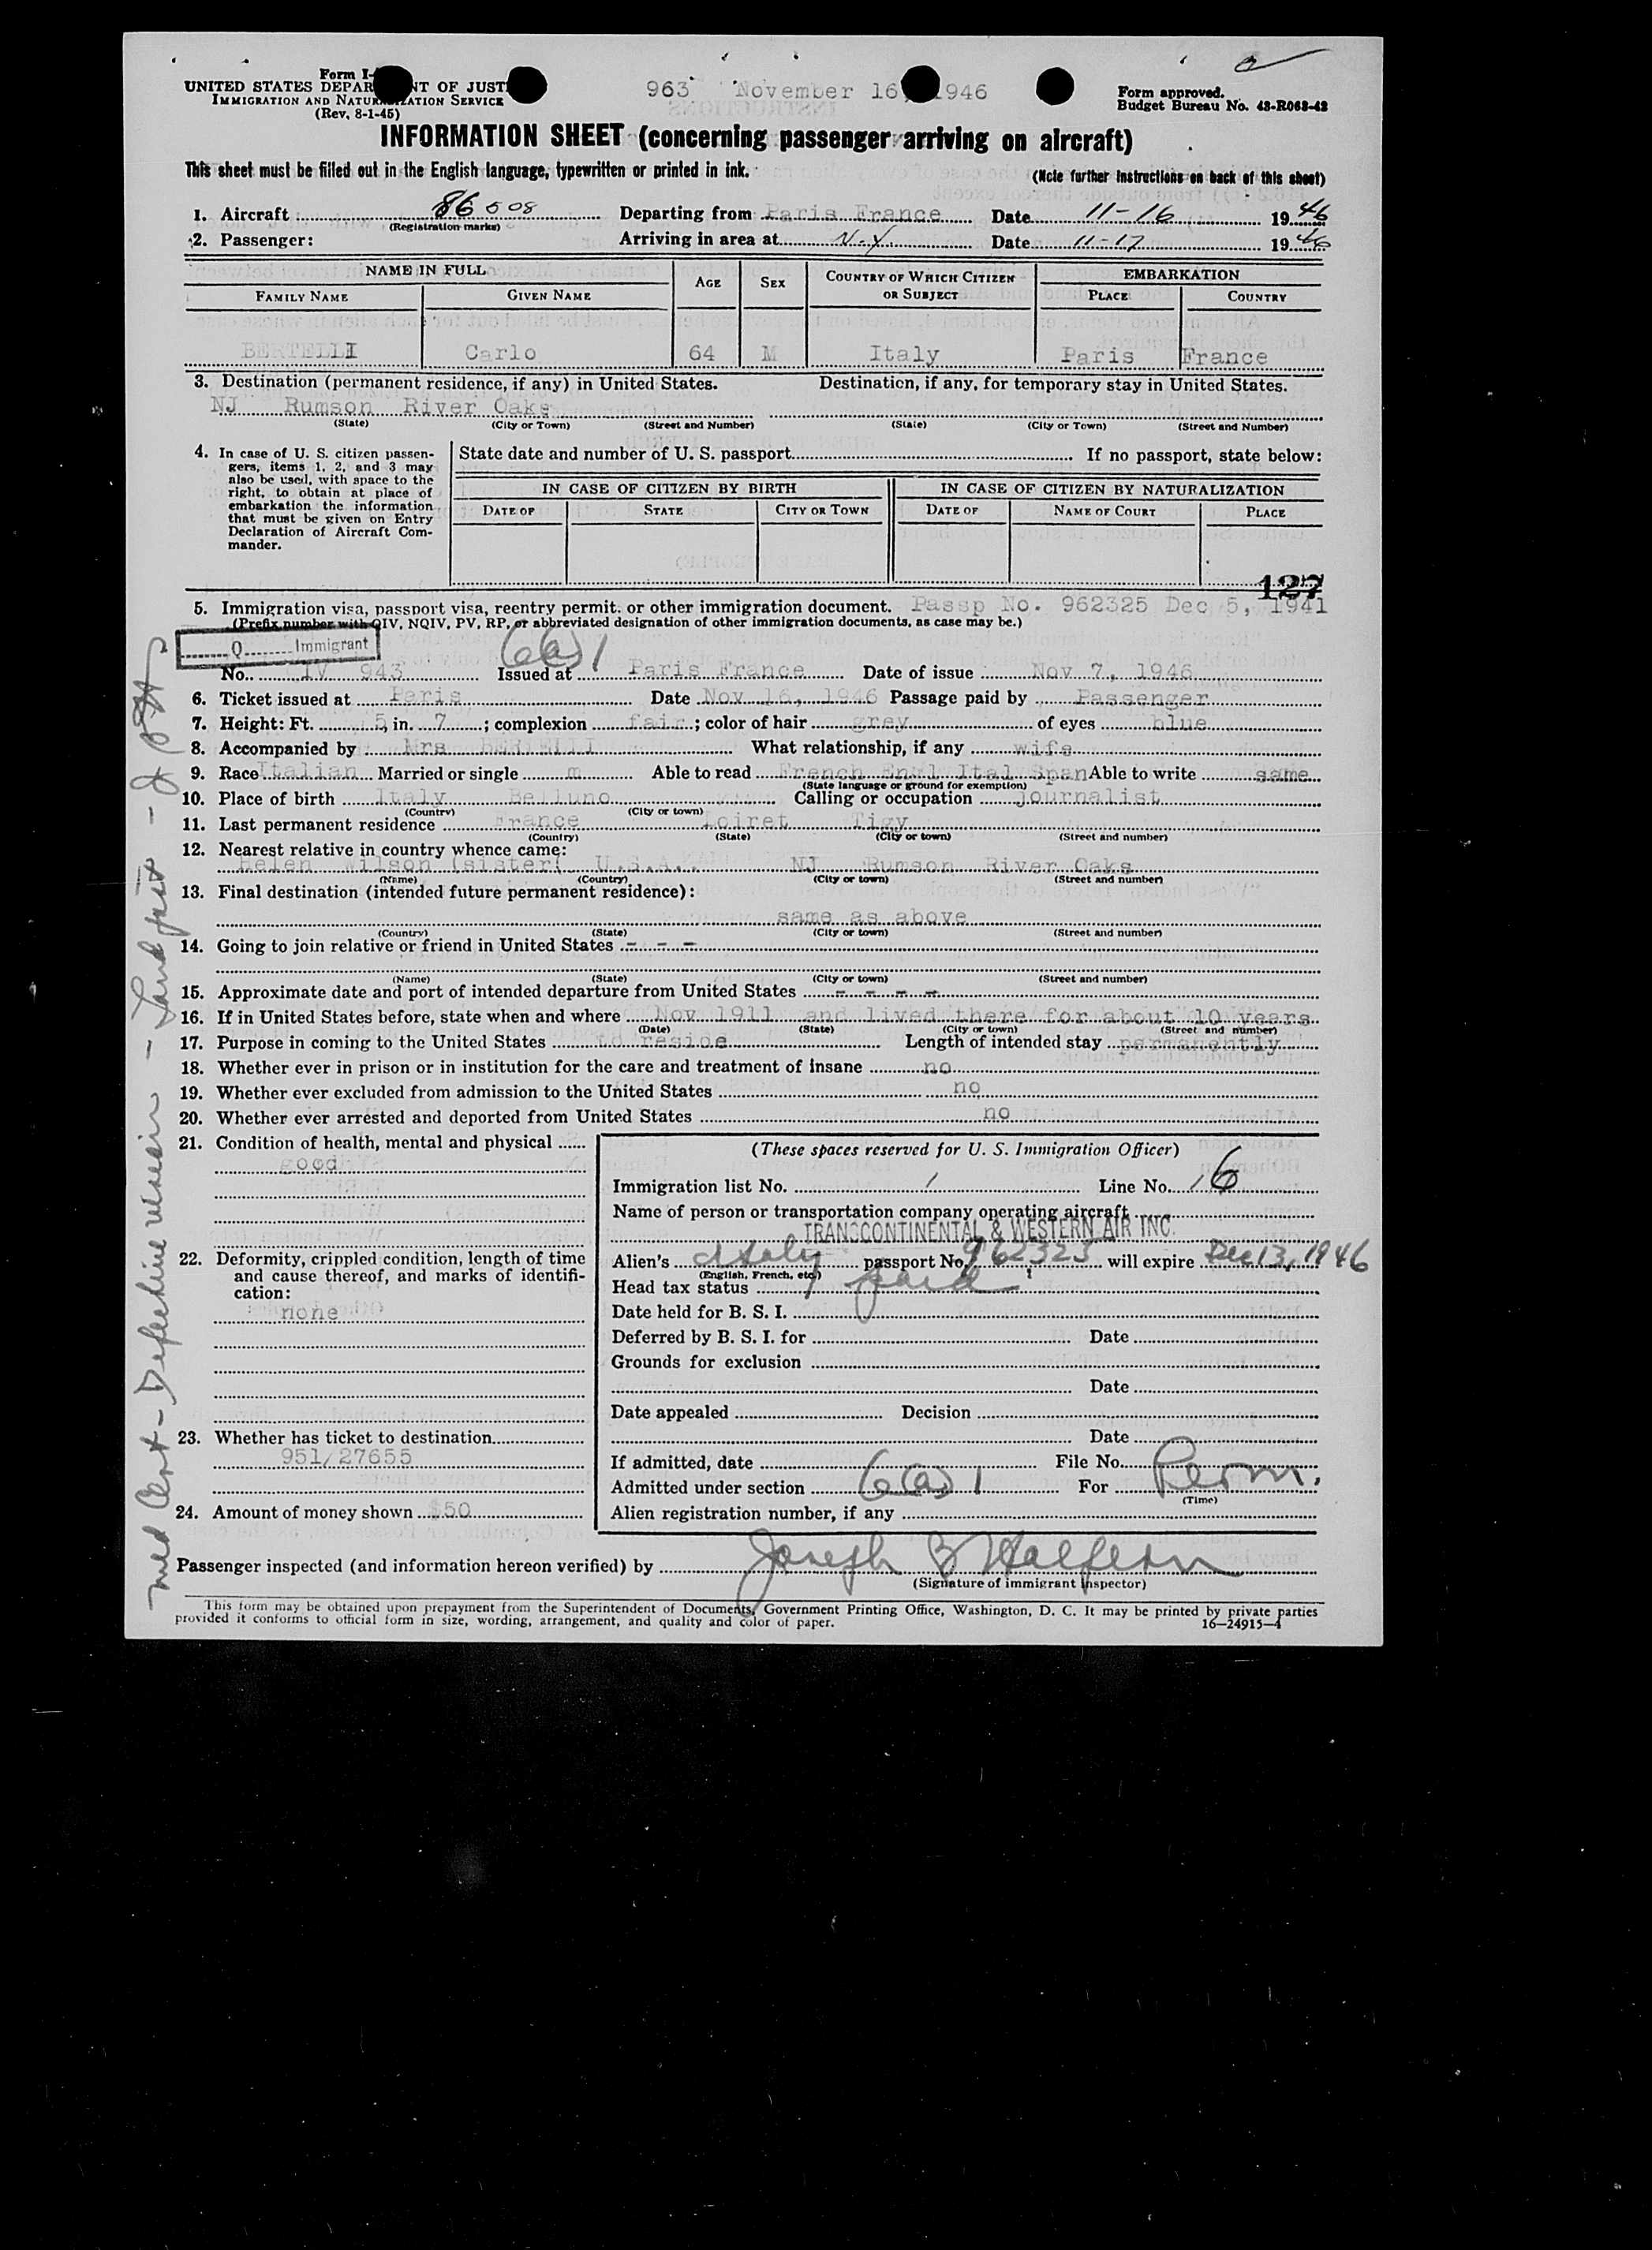 Form I-
UNITED STATES DEPAR NT OF JUST
IMMIGRATION AND NATURALIZATION SERVICE
(Rev. 8-1-45)
963 November 16, 1946
Form approved.
Budget Bureau No. 43-R063-42
INFORMATION SHEET (concerning passenger arriving on aircraft)
This sheet must be filled out in the English language, typewritten or printed in ink.
(Note further instructions on back of this sheet)
1. Aircraft : 86508 Departing from Paris France Date 11-16 1946
(Registration marks)
2. Passenger: Arriving in area at N.Y. Date 11-17 1946
NAME IN FULL AGE SEX COUNTRY OF WHICH CITIZEN OR SUBJECT EMBARKATION
FAMILY NAME GIVEN NAME PLACE COUNTRY
BERTELLI Carlo 64 M Italy Paris France
3. Destination (permanent residence, if any) in United States. Destination, if any, for temporary stay in United States.
NJ Rumson River Oaks
(State) (City or Town) (Street and Number) (State) (City or Town) (Street and Number)
4. In case of U. S. citizen passengers, items 1, 2, and 3 may also be used, with space to the right, to obtain at place of embarkation the information that must be given on Entry Declaration of Aircraft Commander.
State date and number of U. S. passport If no passport, state below:
IN CASE OF CITIZEN BY BIRTH IN CASE OF CITIZEN BY NATURALIZATION
DATE OF STATE CITY OR TOWN DATE OF NAME OF COURT PLACE
127
5. Immigration visa, passport visa, reentry permit, or other immigration document. Passp No. 962325 Dec 5, 1941
(Prefix number with QIV, NQIV, PV, RP, or abbreviated designation of other immigration documents, as case may be.)
Q Immigrant 6(a)1
No. QIV 943 Issued at Paris France Date of issue Nov 7, 1946
6. Ticket issued at Paris Date Nov 16, 1946 Passage paid by Passenger
7. Height: Ft. 5, in. 7 ; complexion fair ; color of hair grey of eyes blue
8. Accompanied by Mrs BERTELLI What relationship, if any wife
9. Race Italian Married or single m Able to read French Engl Ital Span Able to write same
(State language or ground for exemption)
10. Place of birth Italy Belluno Calling or occupation journalist
(Country) (City or town)
11. Last permanent residence France Loiret Tigy
(Country) (State) (City or town) (Street and number)
12. Nearest relative in country whence came:
Helen Wilson (sister( U.S.A., NJ Rumson River Oaks
(Name) (Country) (City or town) (Street and number)
13. Final destination (intended future permanent residence):
same as above
(Country) (State) (City or town) (Street and number)
14. Going to join relative or friend in United States - - -
(Name) (State) (City or town) (Street and number)
15. Approximate date and port of intended departure from United States - - - -
16. If in United States before, state when and where Nov 1911 and lived there for about 10 years
(Date) (State) (City or town) (Street and number)
17. Purpose in coming to the United States to reside Length of intended stay permanently
18. Whether ever in prison or in institution for the care and treatment of insane no
19. Whether ever excluded from admission to the United States no
20. Whether ever arrested and deported from United States no
21. Condition of health, mental and physical
good
22. Deformity, crippled condition, length of time and cause thereof, and marks of identification:
none
23. Whether has ticket to destination
951/27655
24. Amount of money shown $50
(These spaces reserved for U. S. Immigration Officer)
Immigration list No. 1 Line No. 16
Name of person or transportation company operating aircraft
TRANSCONTINENTAL & WESTERN AIR INC.
Alien's Italy passport No. 962325 will expire Dec 13, 1946
(English, French, etc.)
Head tax status paid
Date held for B. S. I.
Deferred by B. S. I. for Date
Grounds for exclusion
Date
Date appealed Decision
Date
If admitted, date File No.
Admitted under section 6(a)1 For Perm.
(Time)
Alien registration number, if any
Passenger inspected (and information hereon verified) by Joseph B Halfern
(Signature of immigrant inspector)
This form may be obtained upon prepayment from the Superintendent of Documents, Government Printing Office, Washington, D. C. It may be printed by private parties
provided it conforms to official form in size, wording, arrangement, and quality and color of paper.
16—24915—4
med Cert - Defective vision